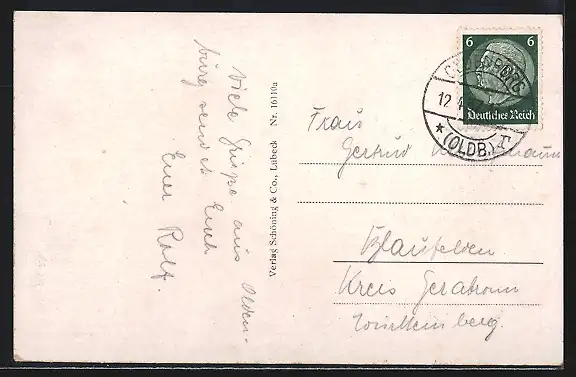 Viele Grüße aus Olden-
burg sendet Euch
Euer Rolf.
Verlag Schöning & Co., Lübeck Nr. 16140a
6 6
Deutsches Reich
12
★ (OLDB.) I
Frau
Gertrud
Blaufelden
Kreis Gerabronn
Württemberg.